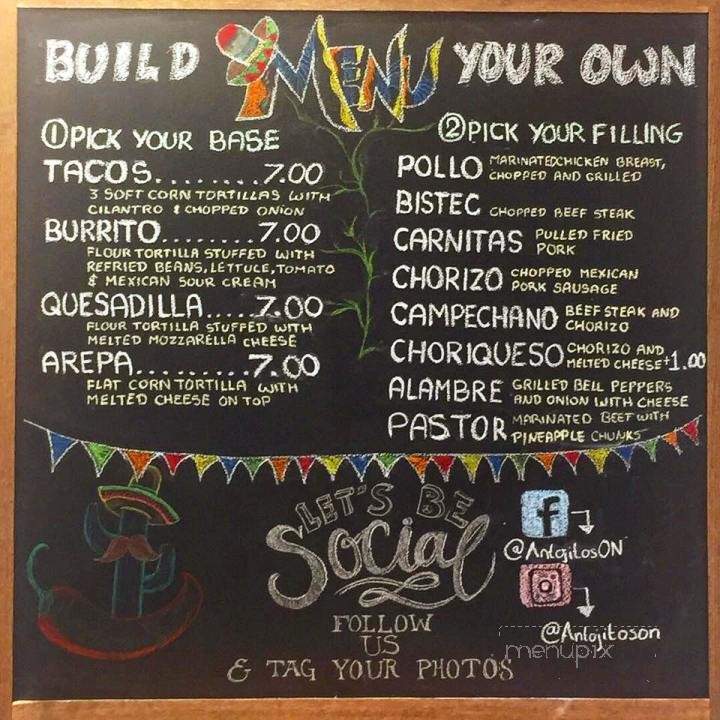 BUILD MENU YOUR OWN
①PICK YOUR BASE
TACOS........7.00
3 SOFT CORN TORTILLAS WITH
CILANTRO & CHOPPED ONION
BURRITO........7.00
FLOUR TORTILLA STUFFED WITH
REFRIED BEANS, LETTUCE, TOMATO
& MEXICAN SOUR CREAM
QUESADILLA.....7.00
FLOUR TORTILLA STUFFED WITH
MELTED MOZZARELLA CHEESE
AREPA..........7.00
FLAT CORN TORTILLA WITH
MELTED CHEESE ON TOP
②PICK YOUR FILLING
POLLO MARINATED CHICKEN BREAST,
CHOPPED AND GRILLED
BISTEC CHOPPED BEEF STEAK
CARNITAS PULLED FRIED
PORK
CHORIZO CHOPPED MEXICAN
PORK SAUSAGE
CAMPECHANO BEEF STEAK AND
CHORIZO
CHORIQUESO CHORIZO AND
MELTED CHEESE +1.00
ALAMBRE GRILLED BELL PEPPERS
AND ONION WITH CHEESE
PASTOR MARINATED BEEF WITH
PINEAPPLE CHUNKS
LET'S BE
Social
FOLLOW
US
& TAG YOUR PHOTOS
f
@AntojitosON
@Antojitoson
menupix